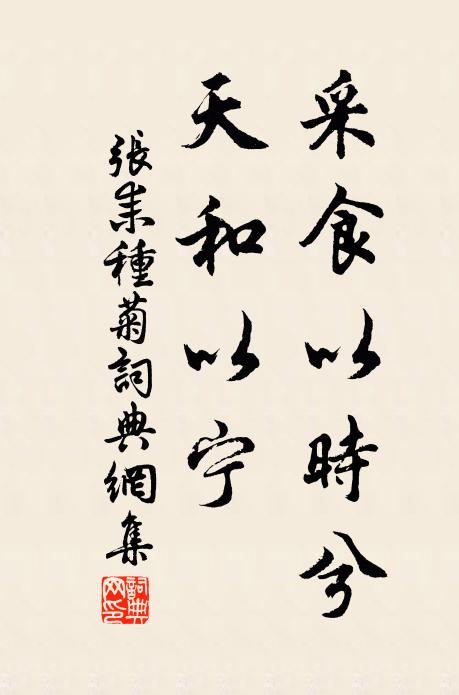 采食以時兮
天和以宁
張耒種菊詞典網集
詞典網印